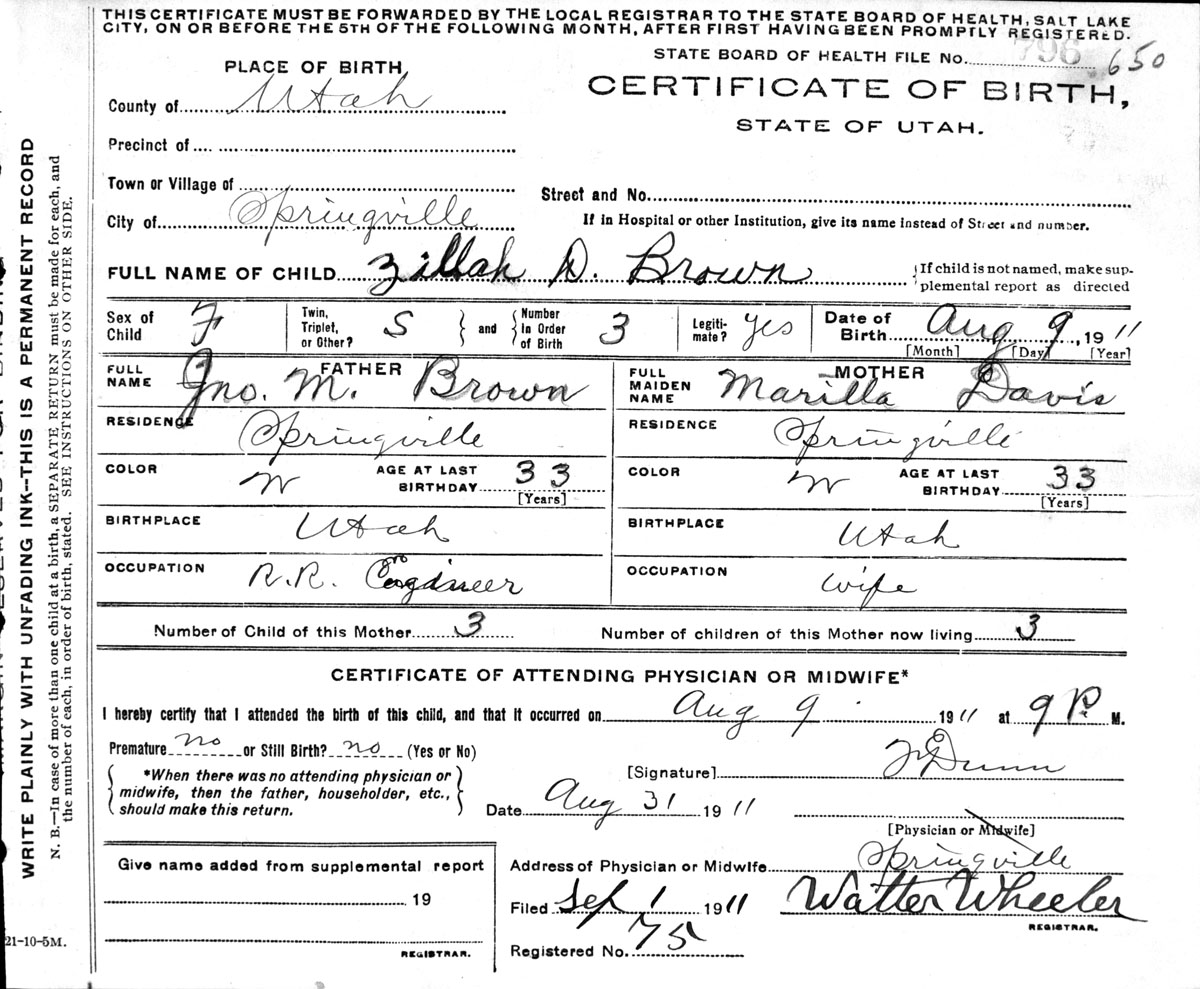 THIS CERTIFICATE MUST BE FORWARDED BY THE LOCAL REGISTRAR TO THE STATE BOARD OF HEALTH, SALT LAKE
CITY, ON OR BEFORE THE 5TH OF THE FOLLOWING MONTH, AFTER FIRST HAVING BEEN PROMPTLY REGISTERED.
STATE BOARD OF HEALTH FILE No. 796 650
PLACE OF BIRTH
CERTIFICATE OF BIRTH,
County of Utah
STATE OF UTAH.
Precinct of
Town or Village of
Street and No.
City of Springville
If in Hospital or other Institution, give its name instead of Street and number.
FULL NAME OF CHILD Zillah D. Brown
If child is not named, make sup-
plemental report as directed
Sex of Child F
Twin, Triplet, or Other? S and Number In Order of Birth 3
Legiti- mate? yes
Date of Birth Aug 9, 1911
[Month] [Day] [Year]
FATHER
FULL NAME Jno. M. Brown
MOTHER
FULL MAIDEN NAME Marilla Davis
RESIDENCE Springville
RESIDENCE Springville
COLOR W AGE AT LAST BIRTHDAY 33 [Years]
COLOR W AGE AT LAST BIRTHDAY 33 [Years]
BIRTHPLACE Utah
BIRTHPLACE Utah
OCCUPATION R.R. Engineer
OCCUPATION wife
Number of Child of this Mother 3 Number of children of this Mother now living 3
CERTIFICATE OF ATTENDING PHYSICIAN OR MIDWIFE*
I hereby certify that I attended the birth of this child, and that it occurred on Aug 9 1911 at 9 P. M.
Premature no or Still Birth? no (Yes or No)
*When there was no attending physician or
midwife, then the father, householder, etc.,
should make this return.
[Signature] Dunn
Date Aug 31 1911
[Physician or Midwife]
Give name added from supplemental report
19
REGISTRAR.
Address of Physician or Midwife Springville
Filed Sep 1 1911 Walter Wheeler
REGISTRAR.
Registered No. 75
21-10-5M.
WRITE PLAINLY WITH UNFADING INK--THIS IS A PERMANENT RECORD
N. B.—In case of more than one child at a birth, a SEPARATE RETURN must be made for each, and
the number of each, in order of birth, stated. SEE INSTRUCTIONS ON OTHER SIDE.